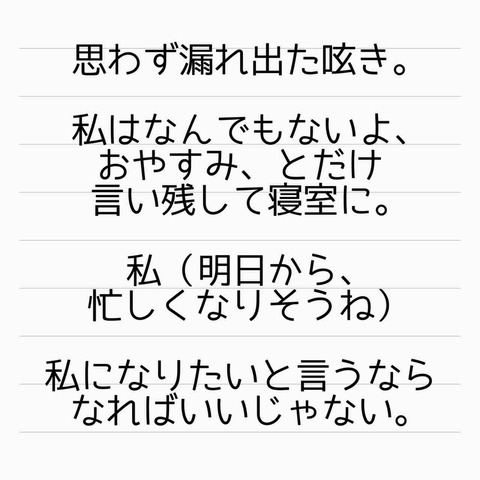 思わず漏れ出た呟き。
私はなんでもないよ、
おやすみ、とだけ
言い残して寝室に。
私（明日から、
忙しくなりそうね）
私になりたいと言うなら
なればいいじゃない。